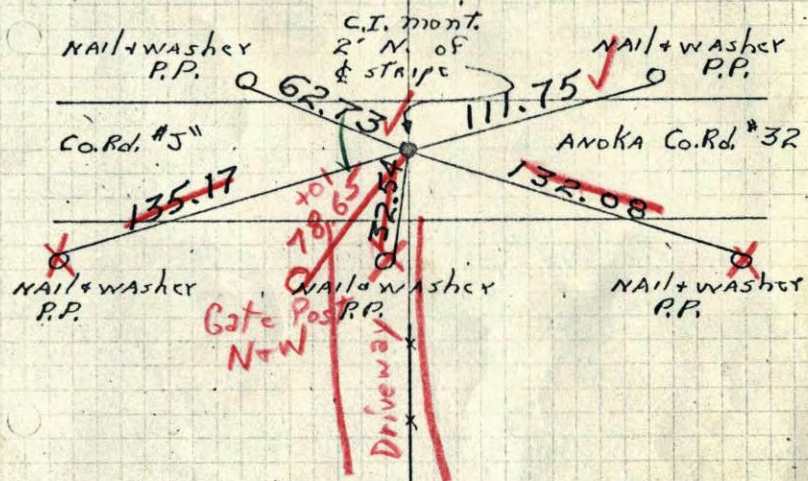 C.I. mont.
2' N. of
¢ stripe
NAil & WAsher
P.P.
NAil & WAsher
P.P.
62.73
111.75
Co.Rd. "J"
ANOKA Co.Rd. #32
135.17
78.65
+01
32.54
132.08
NAil & WAsher
P.P.
NAil & WAsher
P.P.
NAil & WAsher
P.P.
Gate Post
N & W
Driveway